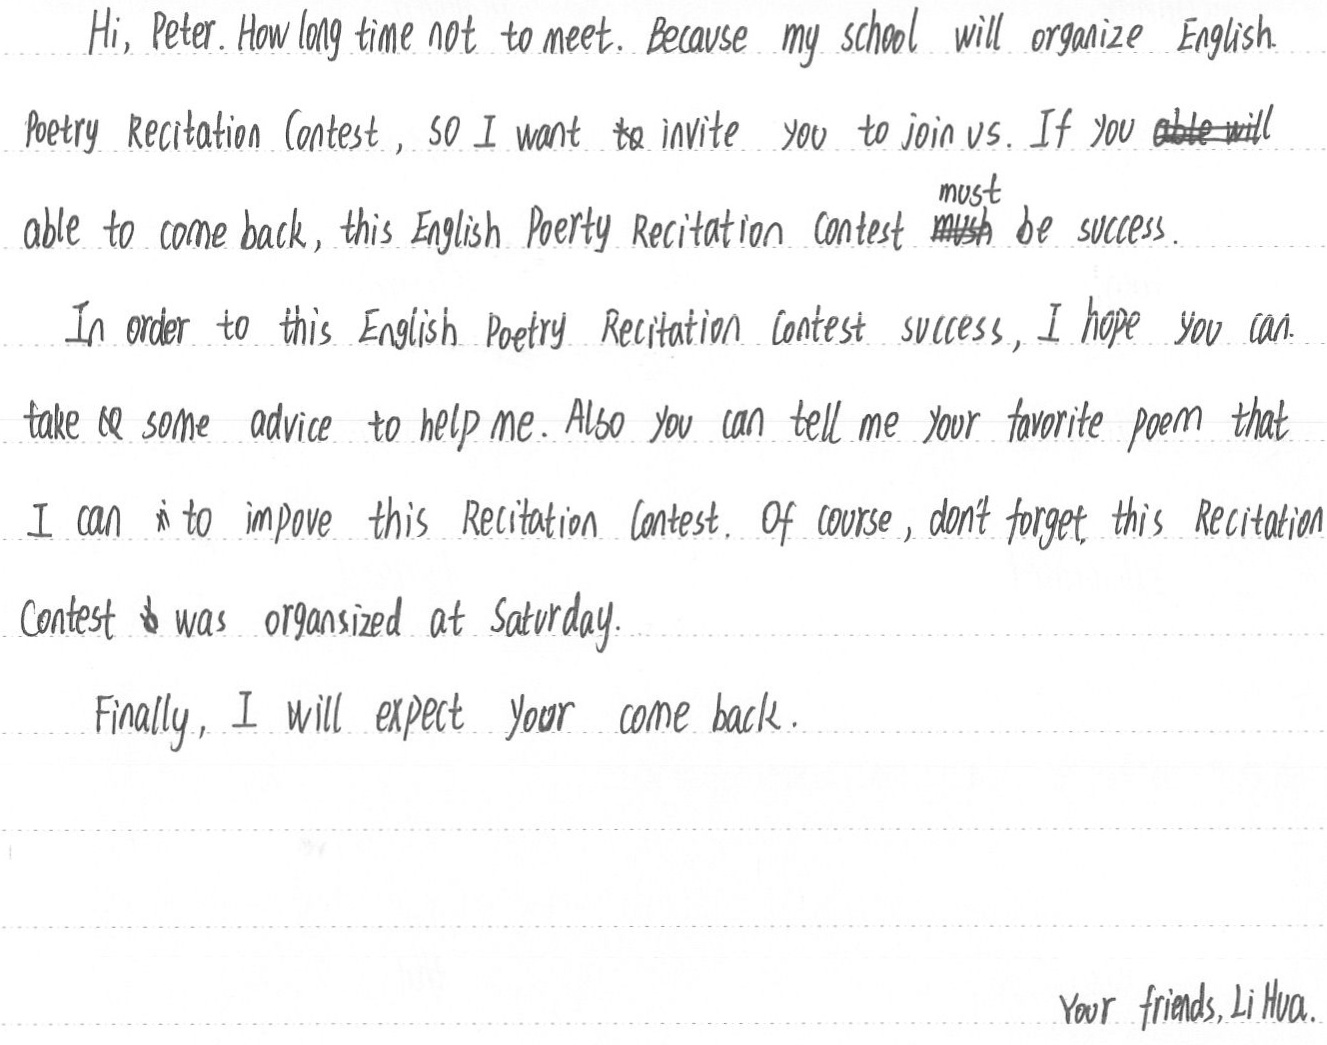 Hi, Peter. How long time not to meet. Because my school will organize English
Poetry Recitation Contest, so I want to invite you to join us. If you
able to come back, this English Poerty Recitation Contest must be success.
In order to this English Poetry Recitation Contest success, I hope you can
take some advice to help me. Also you can tell me your favorite poem that
I can to impove this Recitation Contest. Of course, don't forget, this Recitation
Contest was organsized at Saturday.
Finally, I will expect your come back.
Your friends, Li Hua.